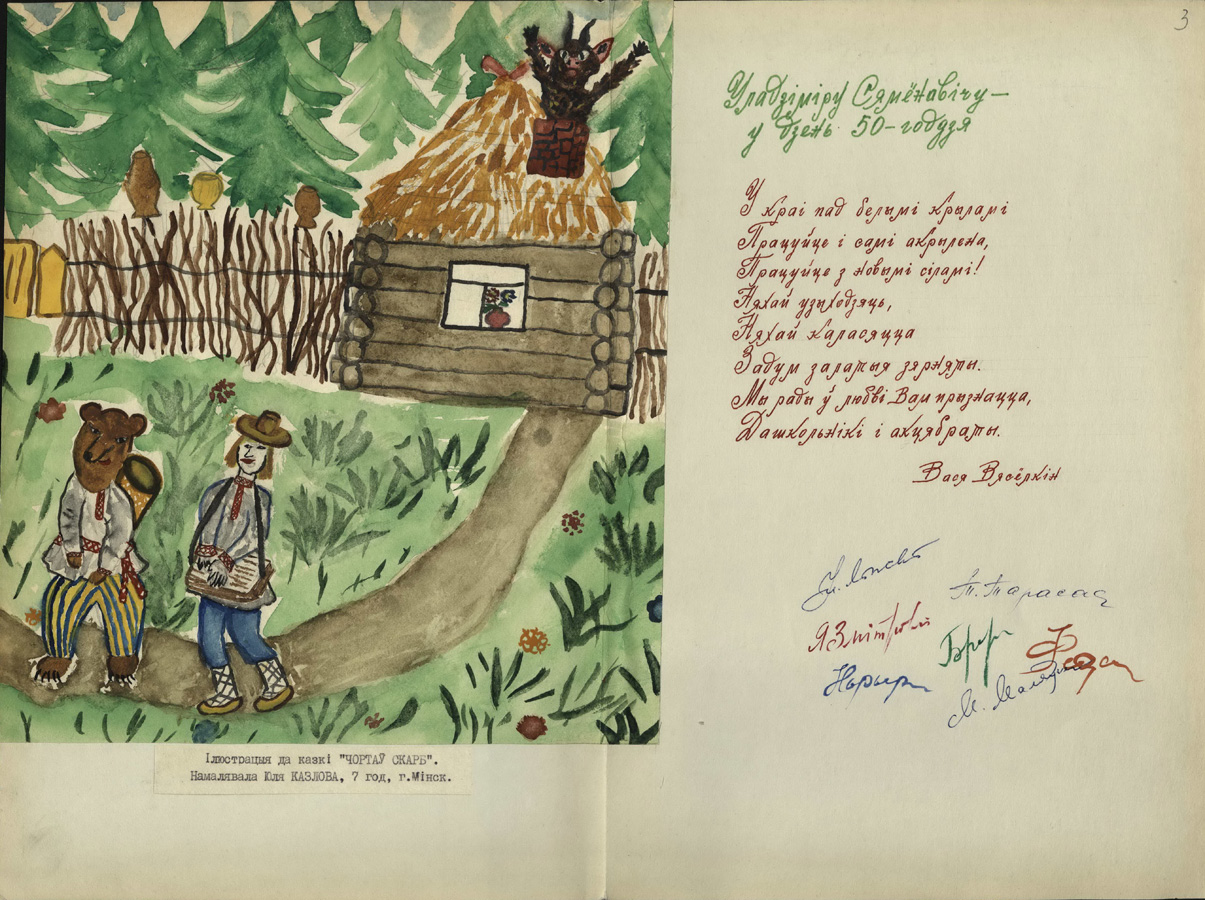 Ілюстрацыя да казкі "ЧОРТАЎ СКАРБ".
Намалявала Юля КАЗЛОВА, 7 год, г.Мінск.
3
Уладзіміру Сямёнавічу —
у дзень 50-годдзя
У краі пад белымі крыламі
Працуйце і самі акрылена,
Працуйце з новымі сіламі!
Няхай узыходзяць,
Няхай каласяцца
Задум залатыя зярняты.
Мы рады ў любві Вам прызнацца,
Дашкольнікі і акцябраты.
Вася Вясёлкін